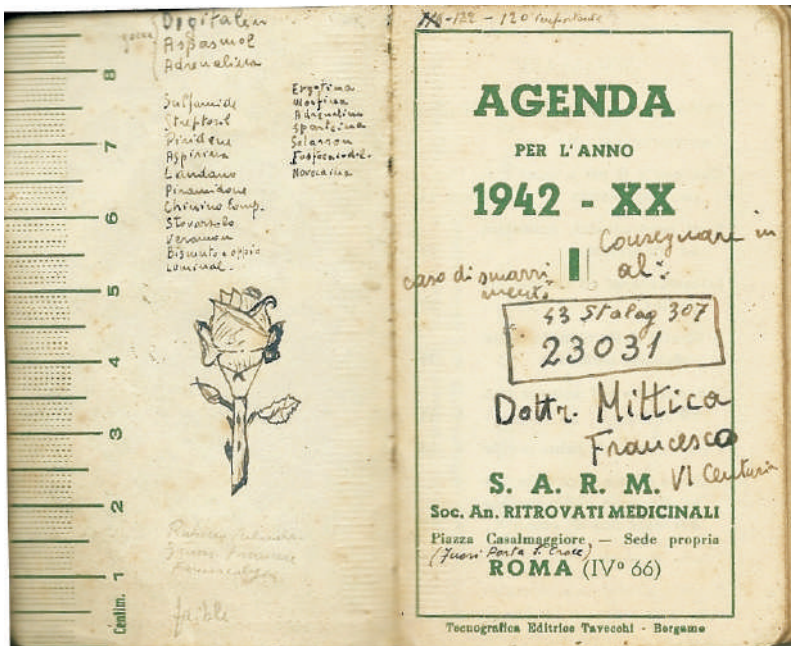 Digitalin
gocce
Aspasmol
Adrenalina
Sulfamide
Streptosil
Piridene
Aspirina
Laudano
Piramidone
Chinino Comp.
Stovarsolo
Veramon
Bismuto e oppio
Luminal.
Ergotina
Morfina
Adrenalina
Sparteina
Solasson
Novocaina
8
7
6
5
4
3
2
1
Centim.
faible
-122 - 120 importante
AGENDA
PER L'ANNO
1942 - XX
Consegnare in
caso di smarri
mento
al:
43 Stalag 307
23031
Dottr. Mittica
Francesco
VI Centuria
S. A. R. M.
Soc. An. RITROVATI MEDICINALI
Piazza Casalmaggiore, — Sede propria
(Fuori Porta S. Croce)
ROMA (IVº 66)
Tecnografica Editrice Tavecchi - Bergamo